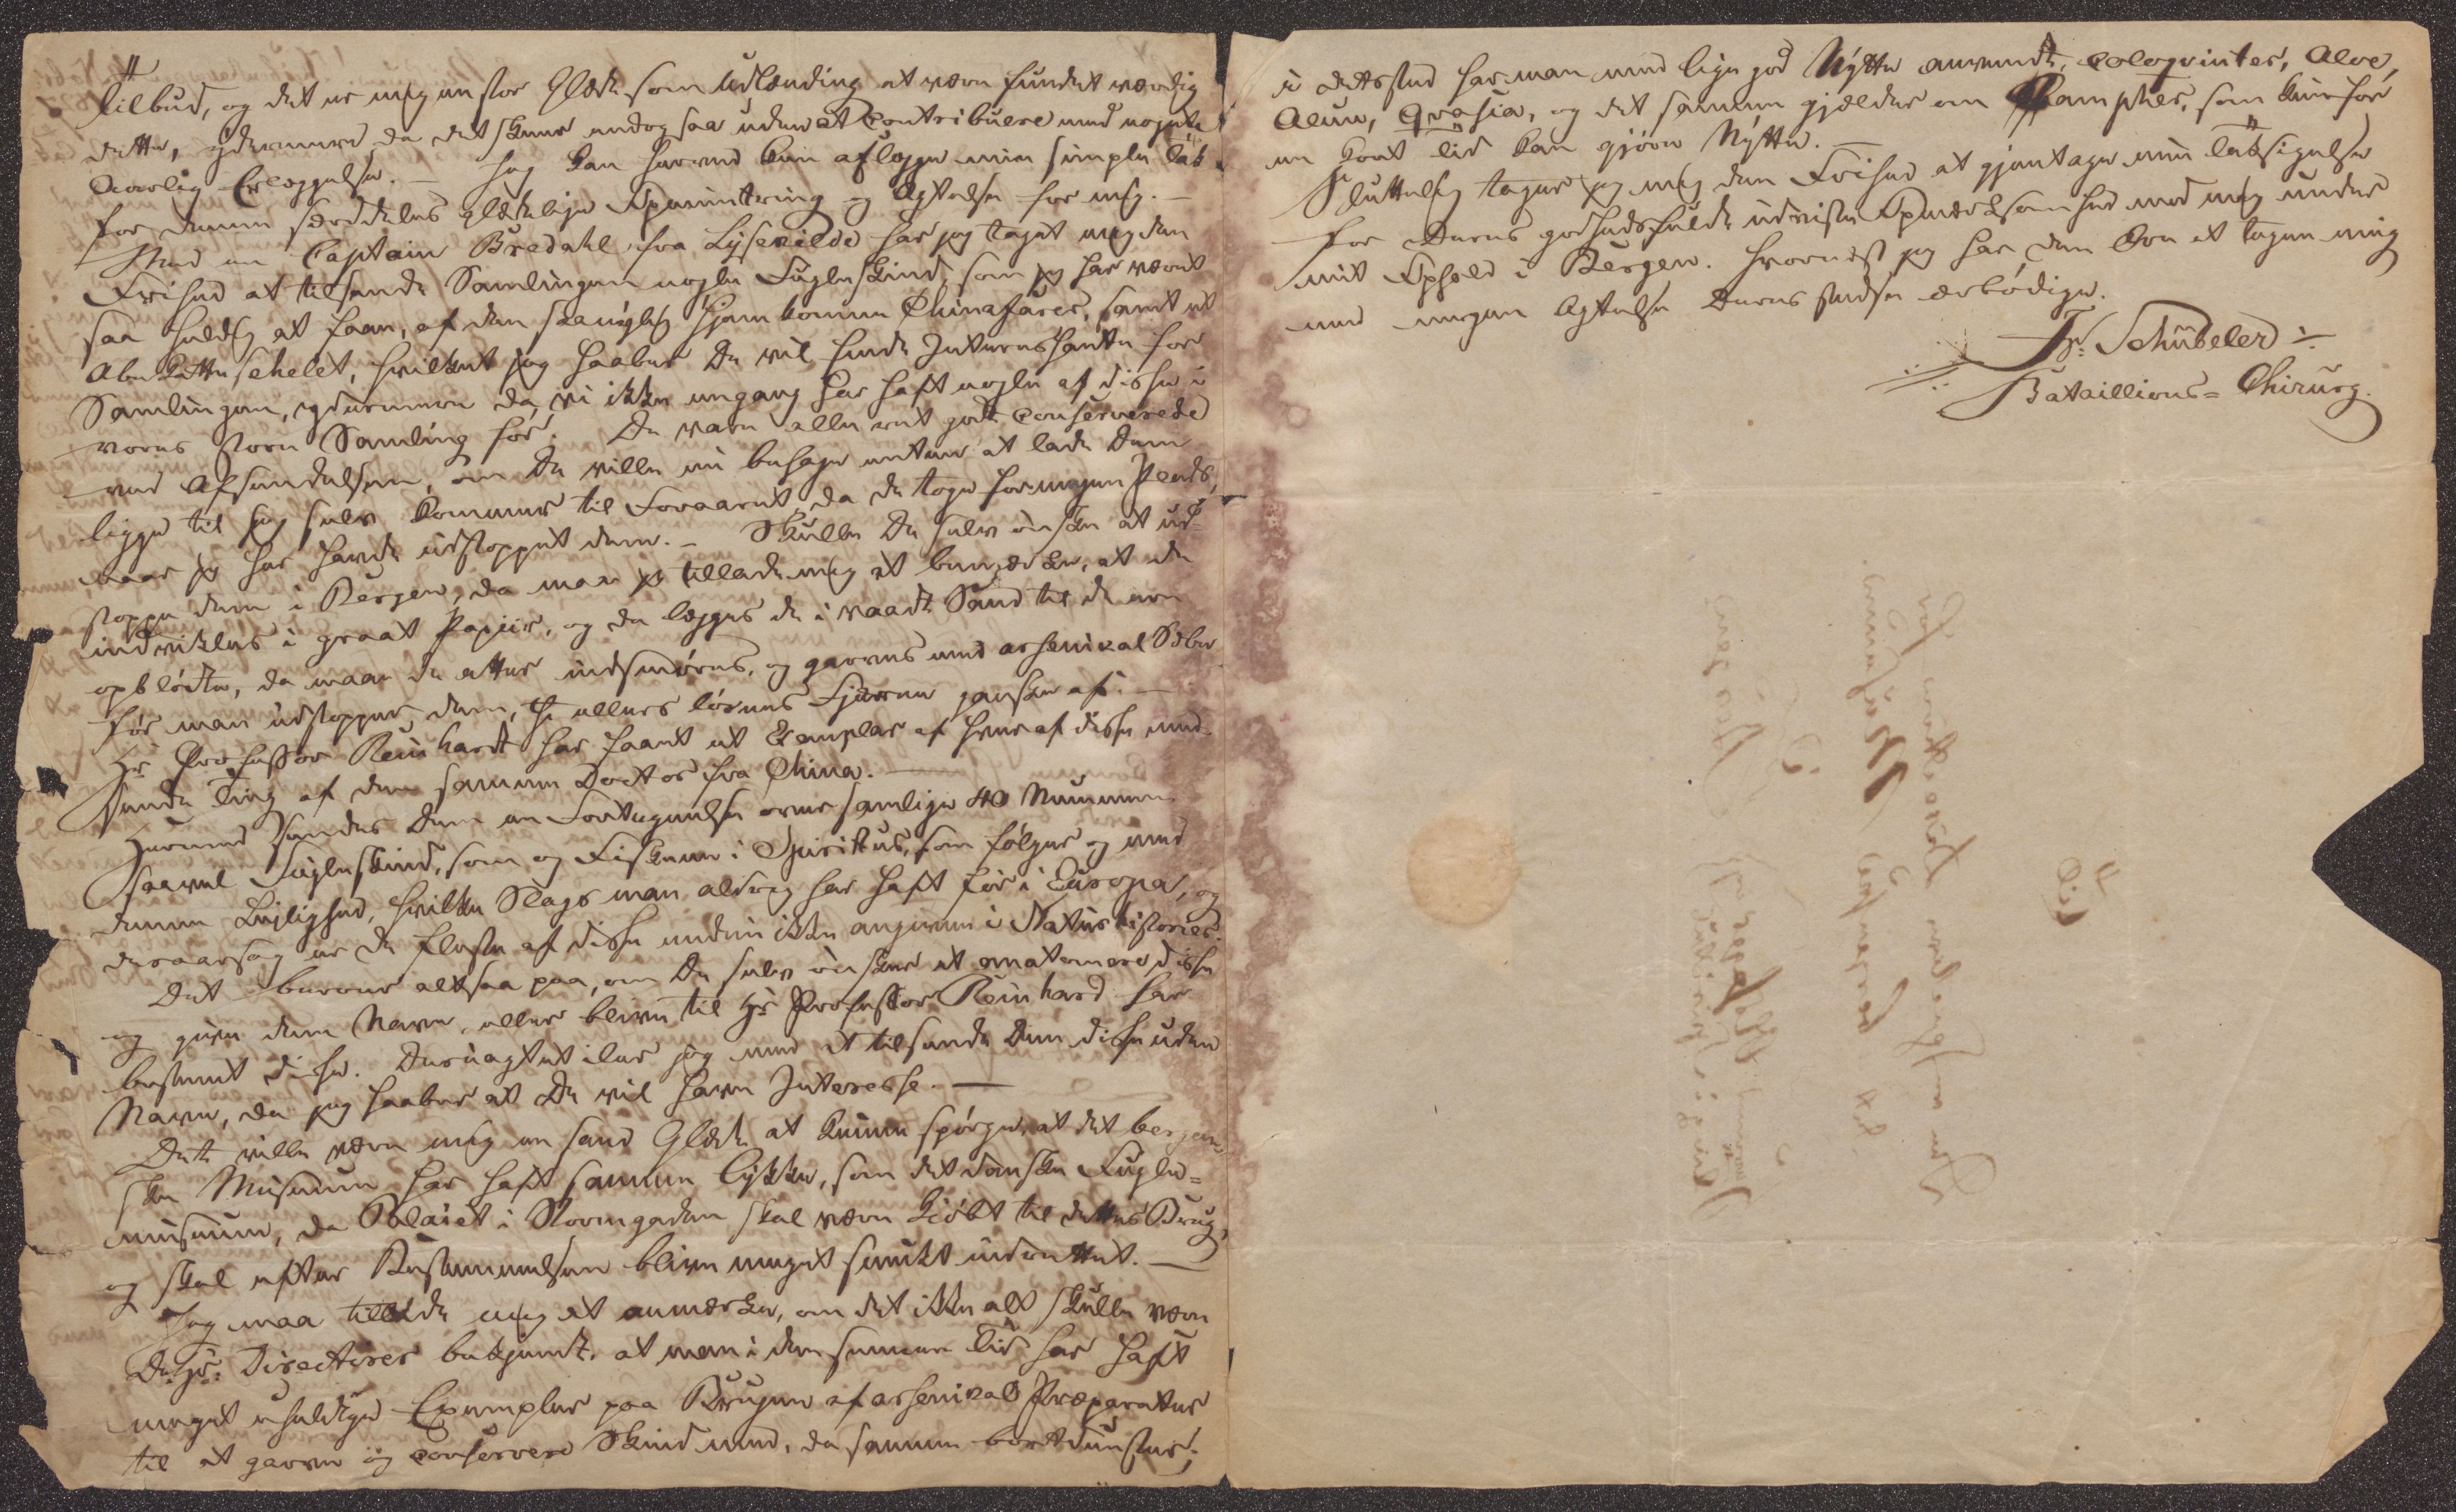 Tilbud, og det er mig en stor Glæde som Udlænding at være fundet værdig
dette, ydermere da det skeer endog saa uden at Contribuere med nogete
Aarlig Erlæggelse. — Jeg kan herved kun aflægge min simple Tak
for denne særdeles glædelige Opmuntring og Agtelse for mig. —
Med en Captain Bredahl fra Lysekilde har jeg taget mig den
Frihed at tilsende Samlingen nogle Fugleskind, som jeg har været
saa heldig at faae, af den saa nylig hjemkomne Chinafarer, samt et
Abekatteschelet, hvilket jeg haaber De vil finde Interessante for
Samlingen, ydermere da vi ikke engang har haft nogle af disse i
vores store Samling før. De vare alle ret godt Conserverede
ved Afsendelsen, om De ville nu behage enten at lade Dem
ligge til jeg selv kommer til Foraaret, da de tage for megen Plads,
naar jeg har havde udstoppet dem. — Skulle De selv ønske at ud-
stoppe dem i Bergen, da maa jeg tillade mig at bemærke, at de
indvikles i graat Papiir, og da lægges de i vaadt Sand til de ere
opblødte, da maae de atter indsmøres, og garves med arsenikal Sæbe
før man udstopper dem, thi ellers løsnes Fjærene ganske af. —
Hr Professor Reinhardt har faaet et Exemplar af hver af disse med-
sendte Ting af den samme Doctor fra China. —
Hermed sendes Dem en Fortegnelse over samtlige 40 Nummere
saavel Fugleskind, som og Fiskene i Spirittus, som følger og med
denne Leilighed, hvilke Slags man aldrig har haft før i Europa, og
deraarsag er de fleste af disse endnu ikke angivne i Naturhistorier.
Det beroer altsaa paa, om De selv ønsker at anatomere disse
og give dem Navn, eller bliver til Hr Professor Reinhard har
bestemt disse. Desuagtet iler jeg med at tilsende Dem disse uden
Navn, da jeg haaber at De vil have Interesse. —
Dette ville være mig en sand Glæde at kunne spørge, at det bergen-
ske Museum har haft samme Lykke, som det danske Fugle=
museum, da Palaiet i Stormgaden skal være kiøbt til dettes Brug,
og skal efter Bestemmelsen blive meget smukt indrettet. —
Jeg maa tillade mig at anmærke, om det ikke alt skulle være
De Hr: Directører bekjendt, at man i den senere Tid har haft
meget uheldige Exempler paa Brugen af arsenikals Præparater
til at garve og conservere Skind med, da samme bortdunster;
i dettssted har man med lige god Nytte anvendt, Cologvinter, Aloe,
Alun, Qvasia, og det samme gjælder om Kampher, som kun for
en kort Tid kan gjøre Nytte. —
Sluttelig tager jeg mig den Frihed at gjentage min Taksigelse
for Deres godhedsfulde udviste Opmærksomhed mod mig under
mit Ophold i Bergen. Hvornæst jeg har den Ære at tegne mig
med megen Agtelse Deres stedse ærbødige.
Fr: Schübeler ÷
Bataillions= Chirurg.